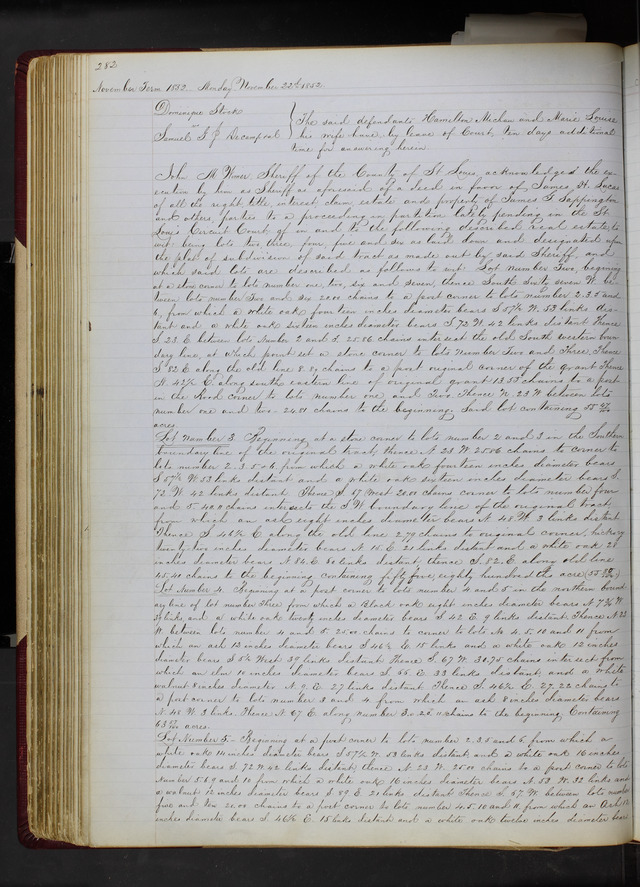 282
November Term 1852 Monday November 22d 1852
Dominique Stock
vs
Samuel F. J. Decamp et al
The said defendants Hamilton Michau and Marie Louise
his wife have by leave of Court, ten days additional
time for answering herein.
John M. Wimer Sheriff of the County of St Louis, acknowledged the ex-
ecution by him as Sheriff as aforesaid of a deed in favor of James H. Lucas
of all the right title, interest, claim, estate and property of James S Sappington
and others, parties to a proceeding in partition lately pending in the St.
Louis Circuit Court, of in and to the following described real estate, to
wit: being lots two, three, four, five and six as laid down and designated upon
the plat of subdivision of said tract as made out by said Sheriff, and
which said lots are described as follows to wit: Lot number Two, beginning
at a stone corner to lots number one, two, six and seven, thence South sixty seven W. be-
tween lots number Two and six 20.00 chains to a post corner to lots number 2.3.5 and
6, from which a white oak fourteen inches diameter bears S 57½ W. 53 links dis-
tant and a white oak sixteen inches diameter bears S 72 W. 42 links distant Thence
S 23 E. between lots number 2 and 3. 25.06 chains intersect the old South western boun-
dary line, at which point set a stone corner to lots number Two and Three, Thence
S 82 E along the old line 8. chains to a post original corner of the grant Thence
N. 42½ E. along south eastern line of original grant 13.53 chains to a post
in the Road corner to lots number one and Two. Thence N 23 W between lots
number one and two. 24.01 chains to the beginning. Said lot containing 55
acres.
Lot Number 3. Beginning at a stone corner to lots number 2 and 3 in the Southern
boundary line of the original tract, thence N 23 W 25.06 chains to corner to
lots number 2.3.5 & 6. from which a white oak fourteen inches diameter bears
S 57½ W 53 links distant and a white oak sixteen inches diameter bears S.
72 W 42 links distant Thence S 67 West 20.00 chains corner to lots number four
and 5 40.0 chains intersects the S W boundary line of the original tract
from which an ash eight inches diameter bears N 48 W 3 links distant
Thence S 46½ E along the old line 2.79 chains to original corner, hickory
twenty two inches diameter bears N 15 E 21 links distant and a white oak 28
inches diameter bears N 84 E 50 links distant, thence S. 82 E. along old line
45.41 chains to the beginning containing fifty five, eighty hundredths acres (55 80/100)
Lot Number 4. Beginning at a post corner to lots number 4 and 5 in the northern bound-
ary line of lot number Three from which a Black oak eight inches diameter bears N 7½ W
links and a white oak twenty inches diameter bears S 42 E 9 links distant Thence N 23
W. between lots number 4 and 5. 25.00 chains to corner to lots No 4.5.10 and 11 from
which an ash 13 inches diameter bears S 46½ E 15 links and a white oak 12 inches
diameter bears S 5½ West 39 links distant Thence S. 67 W. 30.75 chains intersect from
which an elm 10 inches diameter bears S 55 E 33 links distant, and a white
walnut 8 inches diameter N. 9 E 27 links distant Thence S. 46½ E. 27.22 chains to
a post corner to lots number 3 and 4 from which an ash 8 inches diameter bears
N. 48 W 3 links. Thence N 67 E along number 3. 20. chains to the beginning Containing
63 acres.
Lot Number 5.- Beginning at a post corner to lots number 2.3.5 and 6 from which a
white oak 14 inches diameter bears S 57½ W. 53 links distant and a white oak 16 inches
diameter bears S. 72 W 42 links distant, thence N 23 W. 25.00 chains to a post corner to lots
number 5.6.9 and 10 from which a white oak 16 inches diameter bears N. 53 W. 32 links and
a walnut 12 inches diameter bears S 89 E 21 links distant Thence S. 67 W. between lots number
five and Ten 20.00 chains to a post corner to lots number 4.5.10 and 11 from which an Ash 13
inches diameter bears S. 46½ E. 15 links distant and a white oak twelve inches diameter bears